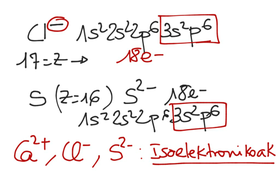 Cl⁻ 1s²2s²2p⁶ 3s²p⁶
17=Z → 18e-
S (Z=16) S²⁻ 18e-
1s²2s²2p⁶ 3s²p⁶
Ca²⁺, Cl⁻, S²⁻: Isoelektronikoak